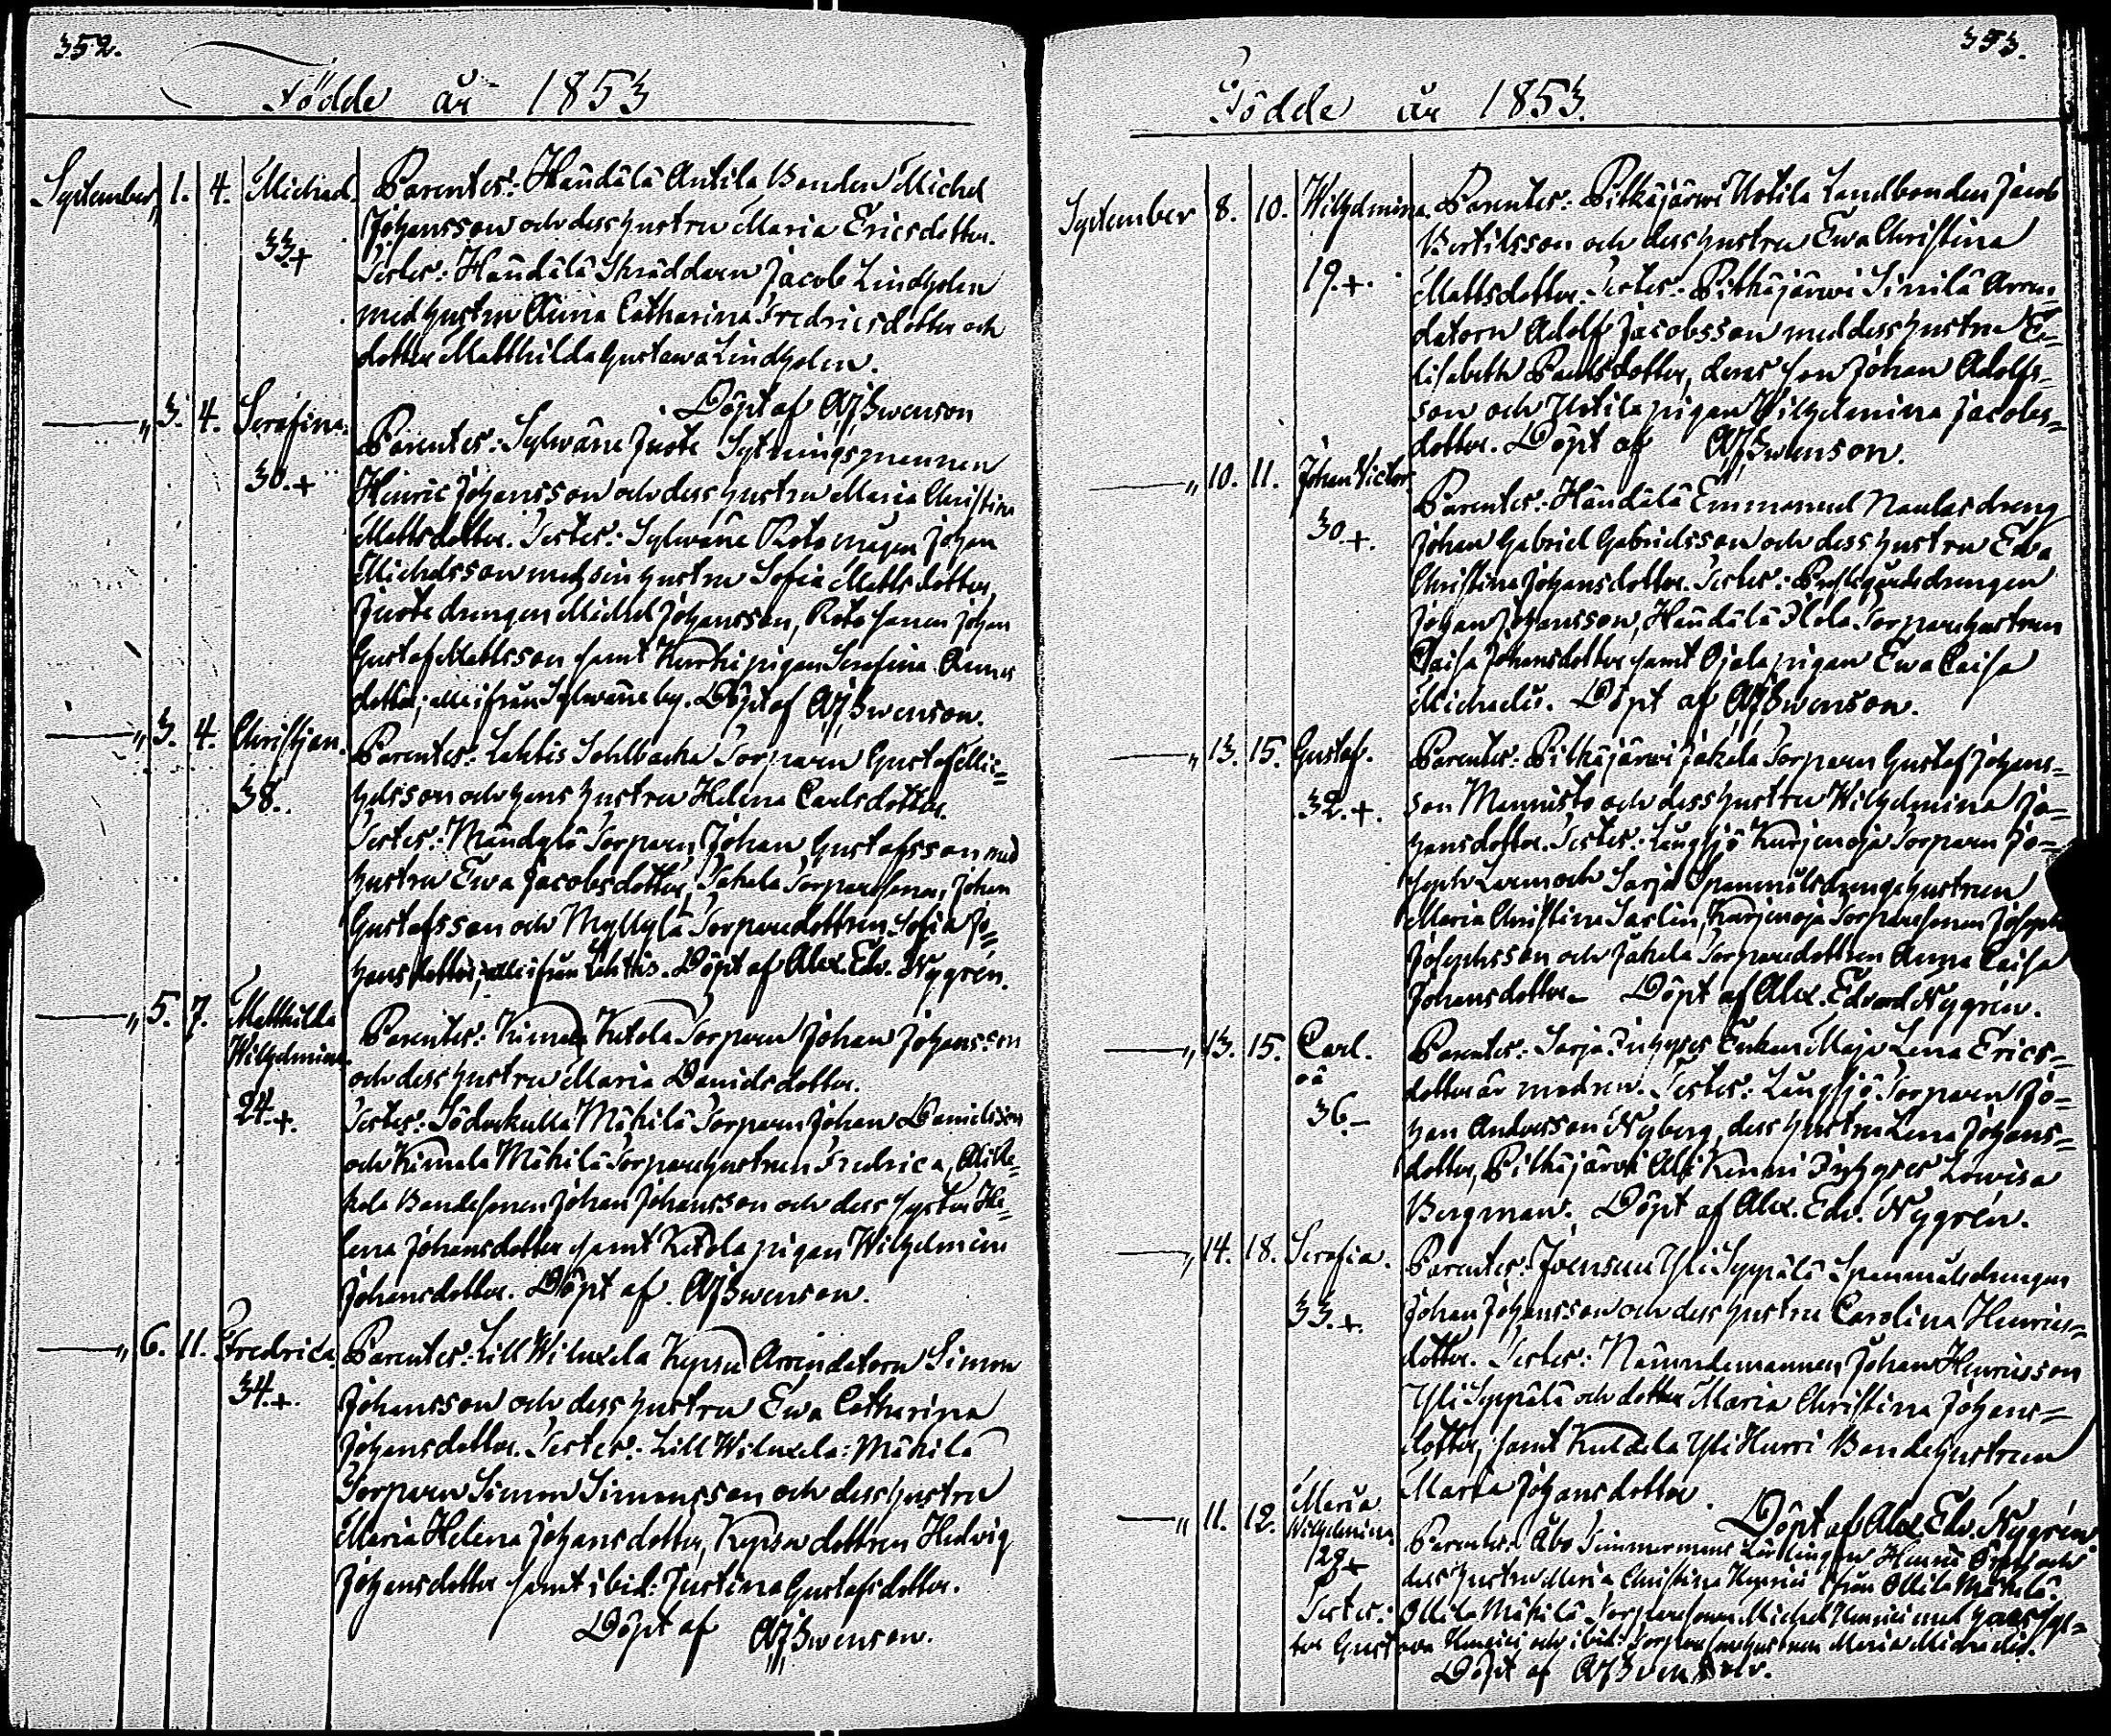 352.
Födde år 1853
September, 1. 4. Michael. Parentes: Haudälä Antila Bonden Michel
Johansson och dess hustru Maria Ericsdotter.
33.+
Testes: Haudälä Skräddaren Jacob Lindholm
med hustru Anna Catharina Fredricsdotter och
dotter Matthilda Gustava Lindholm.
Döpt af AJSwenson
—„ 3. 4. Serafina. Parentes: Sylwäne Juote Sytningsmannen
30.+ Henric Johansson och dess hustru Maria Christina
Mattsdotter. Testes: Sylwäne Roto Johan
Michelsson med sin hustru Sofia Mattsdotter,
Juote drengen Michel Johansson, Roto sonen Johan
Gustaf Mattsson samt Kurki pigan Serafina
dotter; alle ifrån Sylwäne by. Döpt af AJSwenson.
—„ 3. 4. Christian. Parentes: Lahtis Torparen Gustaf Mic=
38. helsson och hans hustru Helena Carlsdotter.
Testes: Torparen Johan Gustafsson med
hustru Ewa Jacobsdotter, Torparesonen, Johan
Gustafsson och Myllylä Torparedottren Sofia Jo=
hansdotter; alle ifrån Lahtis. Döpt af Alex. Edv. Nygrén.
—„ 5. 7. Matthilda
Wilhelmina. Parentes: Kimala Ketola Torparen Johan Johansson
och dess hustru Maria Davidsdotter.
24.+. Testes: Söderkulla Mäkilä Torparen Johan Danielsson
och Kimala Mäkilä Torparehustrun Fredrica,
kola Bondesonen Johan Johansson och dess syster He=
lena Johansdotter samt Ketola pigan Wilhelmina
Johansdotter. Döpt af AJSwenson.
—„ 6. 11. Fredrica. Parentes: Lill Wiluxela Arrendatorn Simon
34.+. Johansson och dess hustru Ewa Catharina
Johansdotter. Testes: Lill Wiluxela: Mäkilä
Torparen Simon Simonsson och dess hustru
Maria Helena Johansdotter, dottren Hedvig
Johansdotter samt ibid: Justina Gustafsdotter.
Döpt af AJSwenson.
353.
Födde år 1853.
September 8. 10. Wilhelmina. Parentes: Pitkäjärwi Uotila Landbonden Jacob
Bertilsson och dess hustru Ewa Christina
19.+. Mattsdotter. Testes: Pitkäjärwi Sinilä Arren=
datorn Adolf Jacobsson med dess hustru E=
lisabeth Paulsdotter, deras son Johan Adolfs=
son och Uotila pigan Wilhelmina Jacobs=
dotter. Döpt af AJSwenson.
—„ 10. 11. Johan Victor. Parentes: Haudälä Emmanuel Naulas dreng
30.+. Johan Gabriel Gabrielsson och dess hustru Ewa
Christina Johansdotter. Testes: Prestegårdsdrengen
Johan Johansson, Haudälä Ilola Torparehustrun
Caisa Johansdotter samt Ojala pigan Ewa Caisa
Michaelis. Döpt af AJSwenson.
—„ 13. 15. Gustaf. Parentes: Pitkäjärwi Jakala Torparen Gustaf Johans=
32.+. son Mannisto och dess hustru Wilhelmina Jo=
hansdotter. Testes: Långsjö Kurjenoja Torparen Jo=
seph och Sarja Spannmålsdrengshustrun
Maria Christina Saslin, Kurjenoja Torparesonen Joseph
Josephsson och Jakala Torparedottren Anna Caisa
Johansdotter. Döpt af Alex. Edvard Nygrén.
—„ 13. 15. Carl. Parentes: Sarja Inhyses Enkan Maja Lena Erics=
oä dotter är modren. Testes: Långsjö Torparen Jo=
36.- han Andersson Nyberg, dess hustru Lena Johans=
dotter, Pitkäjärwi Ali Kinni Inhyses Lowisa
Bergman. Döpt af Alex. Edv. Nygrén.
—„ 14. 18. Serafia. Parentes: Ivensuu Yli Seppälä Spannmålsdrengen
33.+. Johan Johansson och dess hustru Carolina Henrics=
dotter. Testes: Nämndemannen Johan Henricsson
Yli Seppälä och dotter Maria Christina Johans=
dotter, samt Yli Hurri Bondehustrun
Maria Johansdotter.
Döpt af Alex. Edv. Nygrén.
—„ 11. 12. Maria
Wilhelmina. Parentes Åbo Timmermans Lärlingen Henric och
28+ dess hustru Maria Christina Henrici från Ollila Mäkilä.
Testes: Ollila Mäkilä Torparesonen Michel Henrici med hans sys=
ter Gustava Henrici och ibid: Torparesonhustrun Maria Michaelis.
Döpt af AJSwenson.